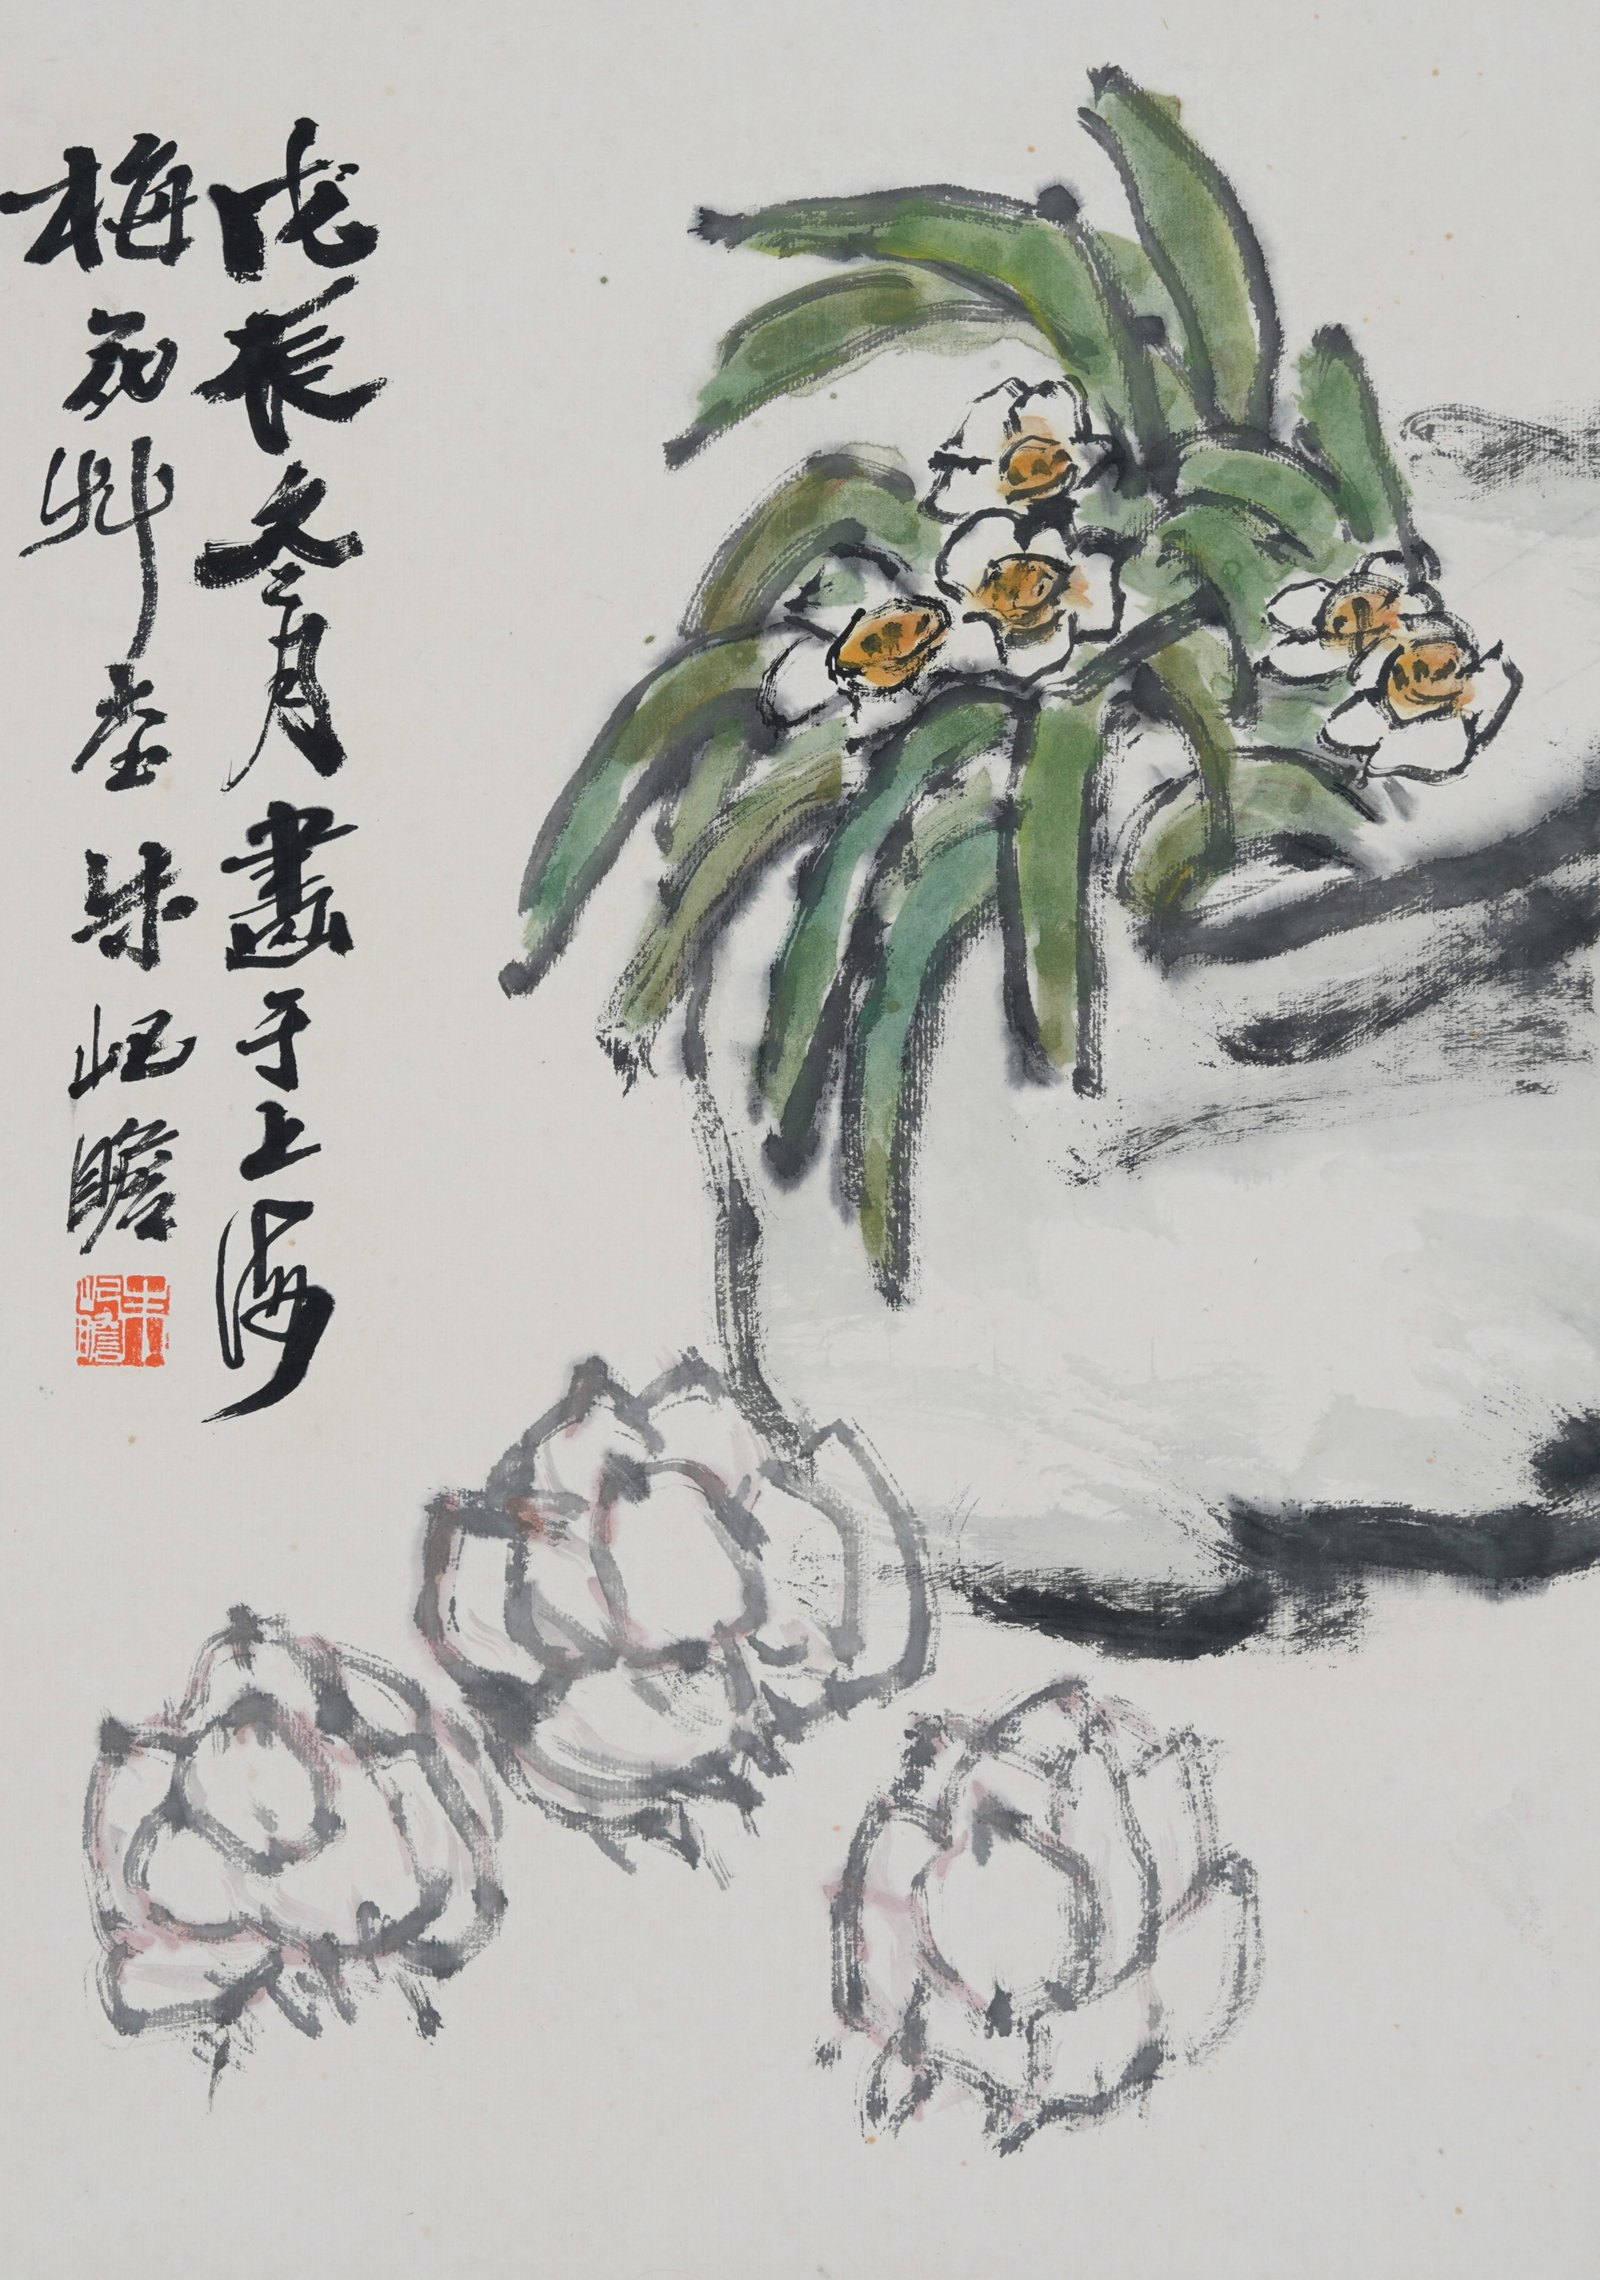 戊辰冬月畫于上海
梅花艸堂朱屺瞻
朱屺瞻